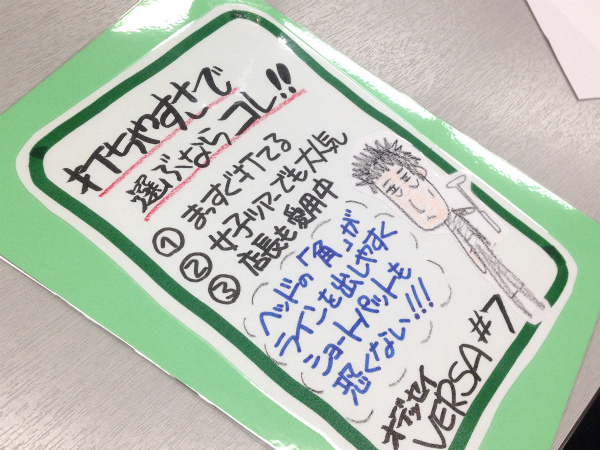 打ちやすさで
選ぶならコレ!!
① まっすぐ打てる
② 女子ツアーでも大人気
③ 店長も愛用中
ヘッドの「角」が
ラインを出しやすく
ショートパットも
恐くない!!!
オデッセイ
VERSA #7